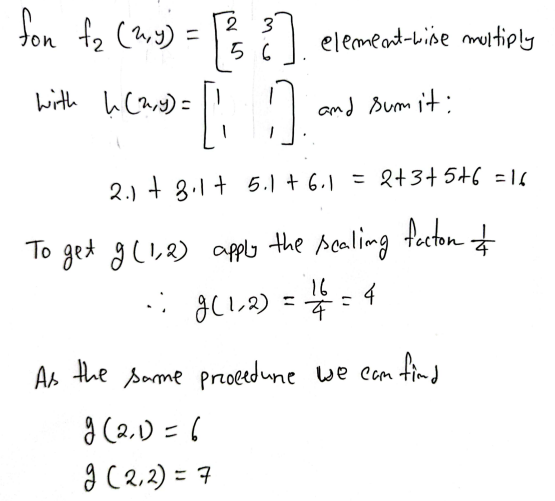 fon f₂ (x,y) = [2 3
5 6]. element-wise multiply
with h(x,y) = [1 1
1 1]. and sum it:
2.1 + 3.1 + 5.1 + 6.1 = 2+3+5+6 = 16
To get g(1,2) apply the scaling facton 1/4
∴ g(1,2) = 16/4 = 4
As the same procedure we can find
g(2,1) = 6
g(2,2) = 7